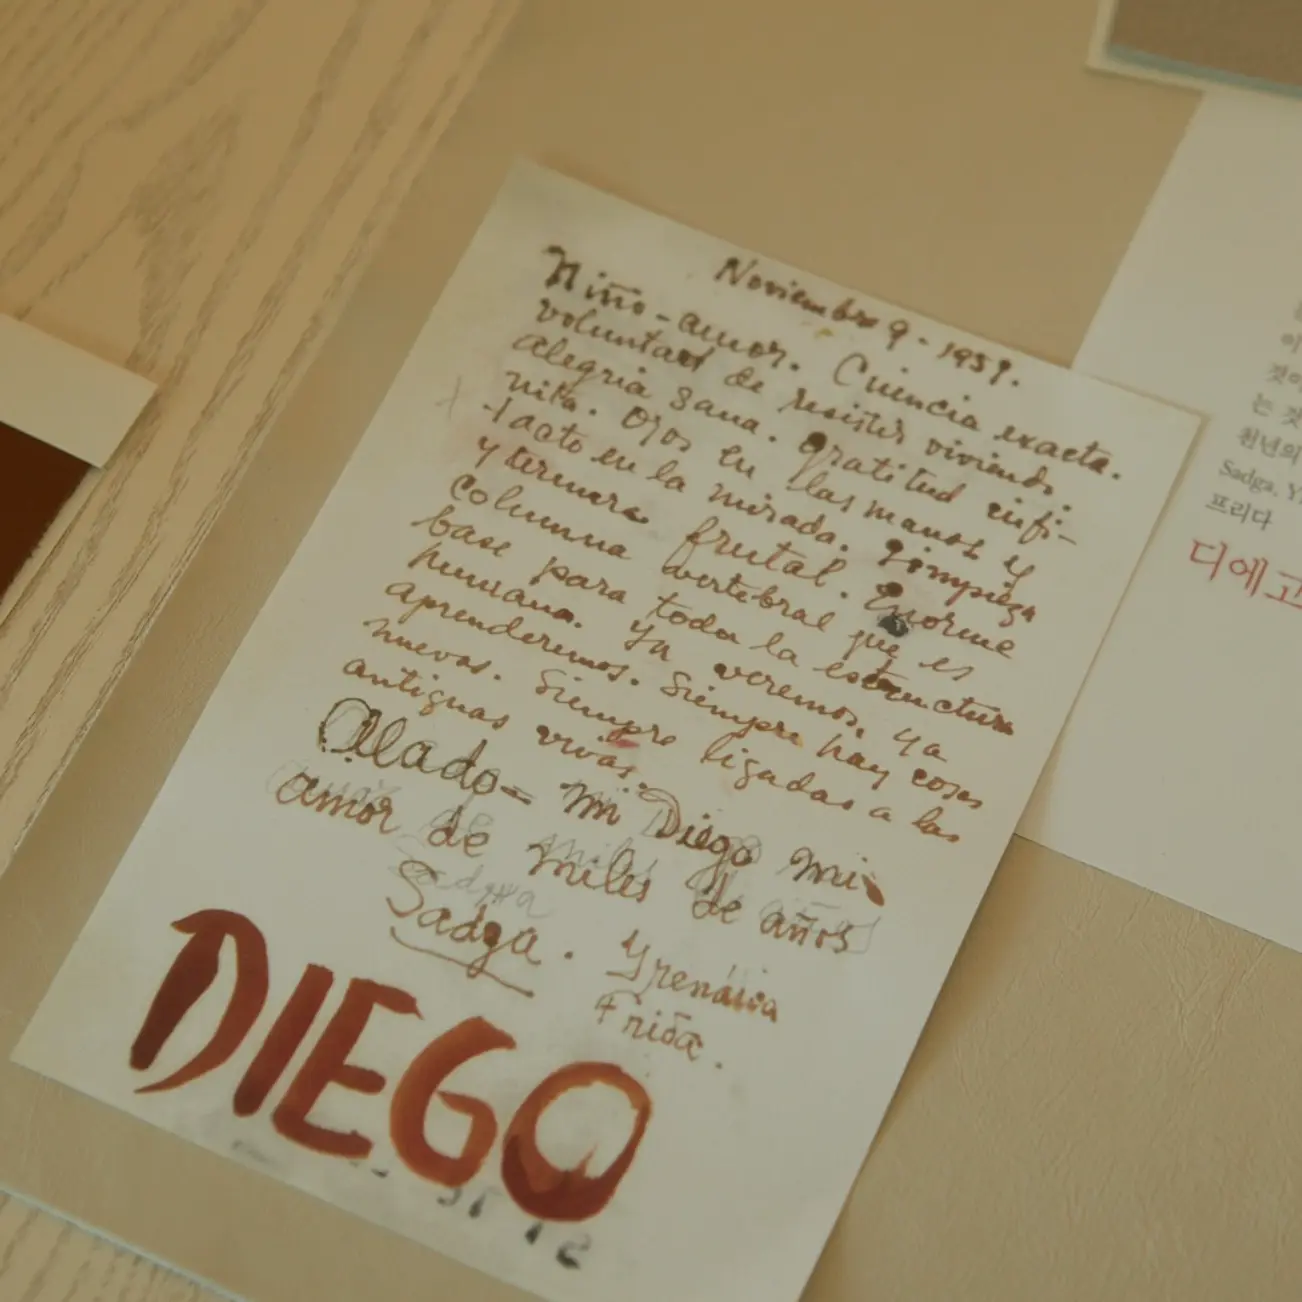 Noviembre 9 - 1951.
Niño-amor. Ciencia exacta.
voluntad de resistir viviendo,
alegria sana. Gratitud infi-
nita. Ojos en las manos y
tacto en la mirada. Limpieza
y ternura frutal. Enorme
columna vertebral que es
base para toda la estructura
humana. Ya veremos, ya
aprenderemos. Siempre hay cosas
nuevas. Siempre ligadas a las
antiguas vivas.
Alado- mi Diego mi
amor de miles de años
Sadga. Yrenáica
Frida.
DIEGO
이
것이
는 것
천년의
Sadga, Y
프리다
디에고